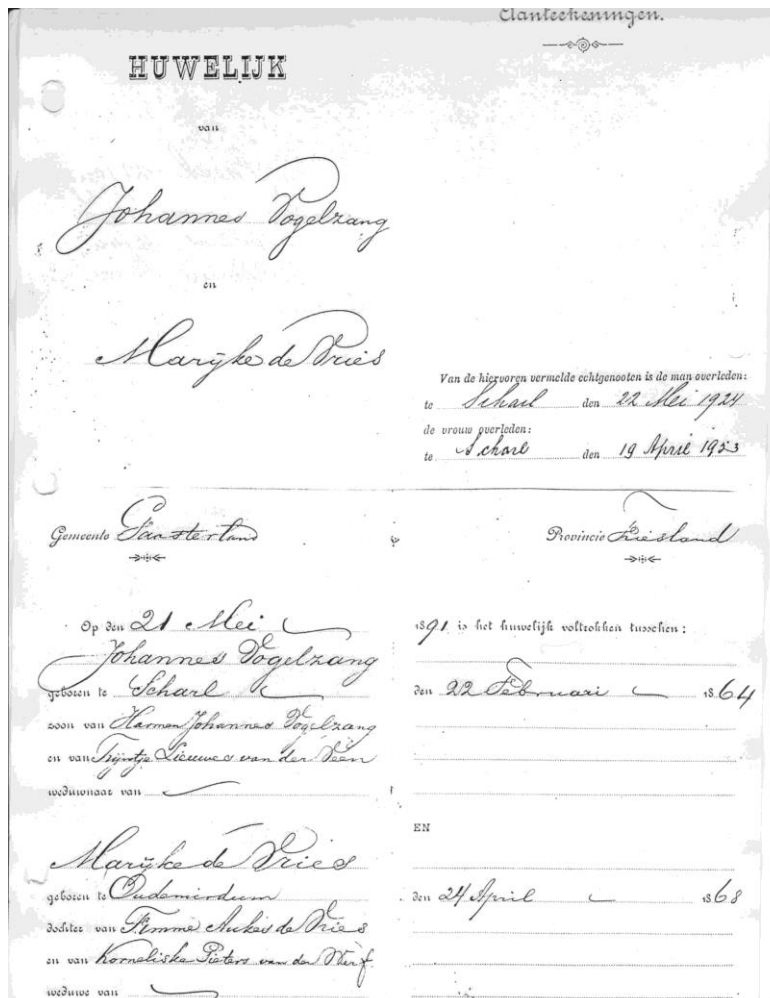 Aanteekeningen.
HUWELIJK
van
Johannes Vogelzang
en
Marijke de Vries
Van de hiervoren vermelde echtgenooten is de man overleden:
te Scharl den 22 Mei 1924
de vrouw overleden:
te Scharl den 19 April 1953
Gemeente Gaasterland Provincie Friesland
Op den 21 Mei 1891 is het huwelijk voltrokken tusschen:
Johannes Vogelzang
geboren te Scharl den 22 Februari 1864
zoon van Harmen Johannes Vogelzang
en van Trijntje Lieuwes van der Veen
weduwnaar van
EN
Marijke de Vries
geboren te Oudemirdum den 24 April 1868
dochter van Femme Aukes de Vries
en van Korneliske Pieters van der Werf
weduwe van